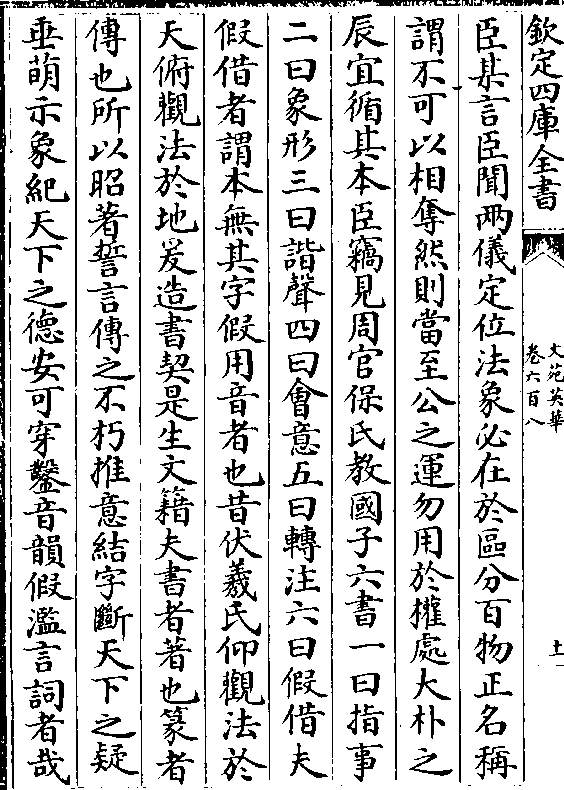 欽定四庫全書
文苑英華
卷六百八
十一
臣某言臣聞兩儀定位法象必在於區分百物正名稱
謂不可以相奪然則當至公之運勿用於權處大朴之
辰宜循其本臣竊見周官保氏教國子六書一曰指事
二曰象形三曰諧聲四曰㑹意五曰轉注六曰假借夫
假借者謂本無其字假用音者也昔伏羲氏仰觀法於
天俯觀法於地爰造書契是生文籍夫書者著也篆者
傳也所以昭著誓言傳之不朽推意結字斷天下之疑
垂萌示象紀天下之德安可穿鑿音韻假濫言詞者哉